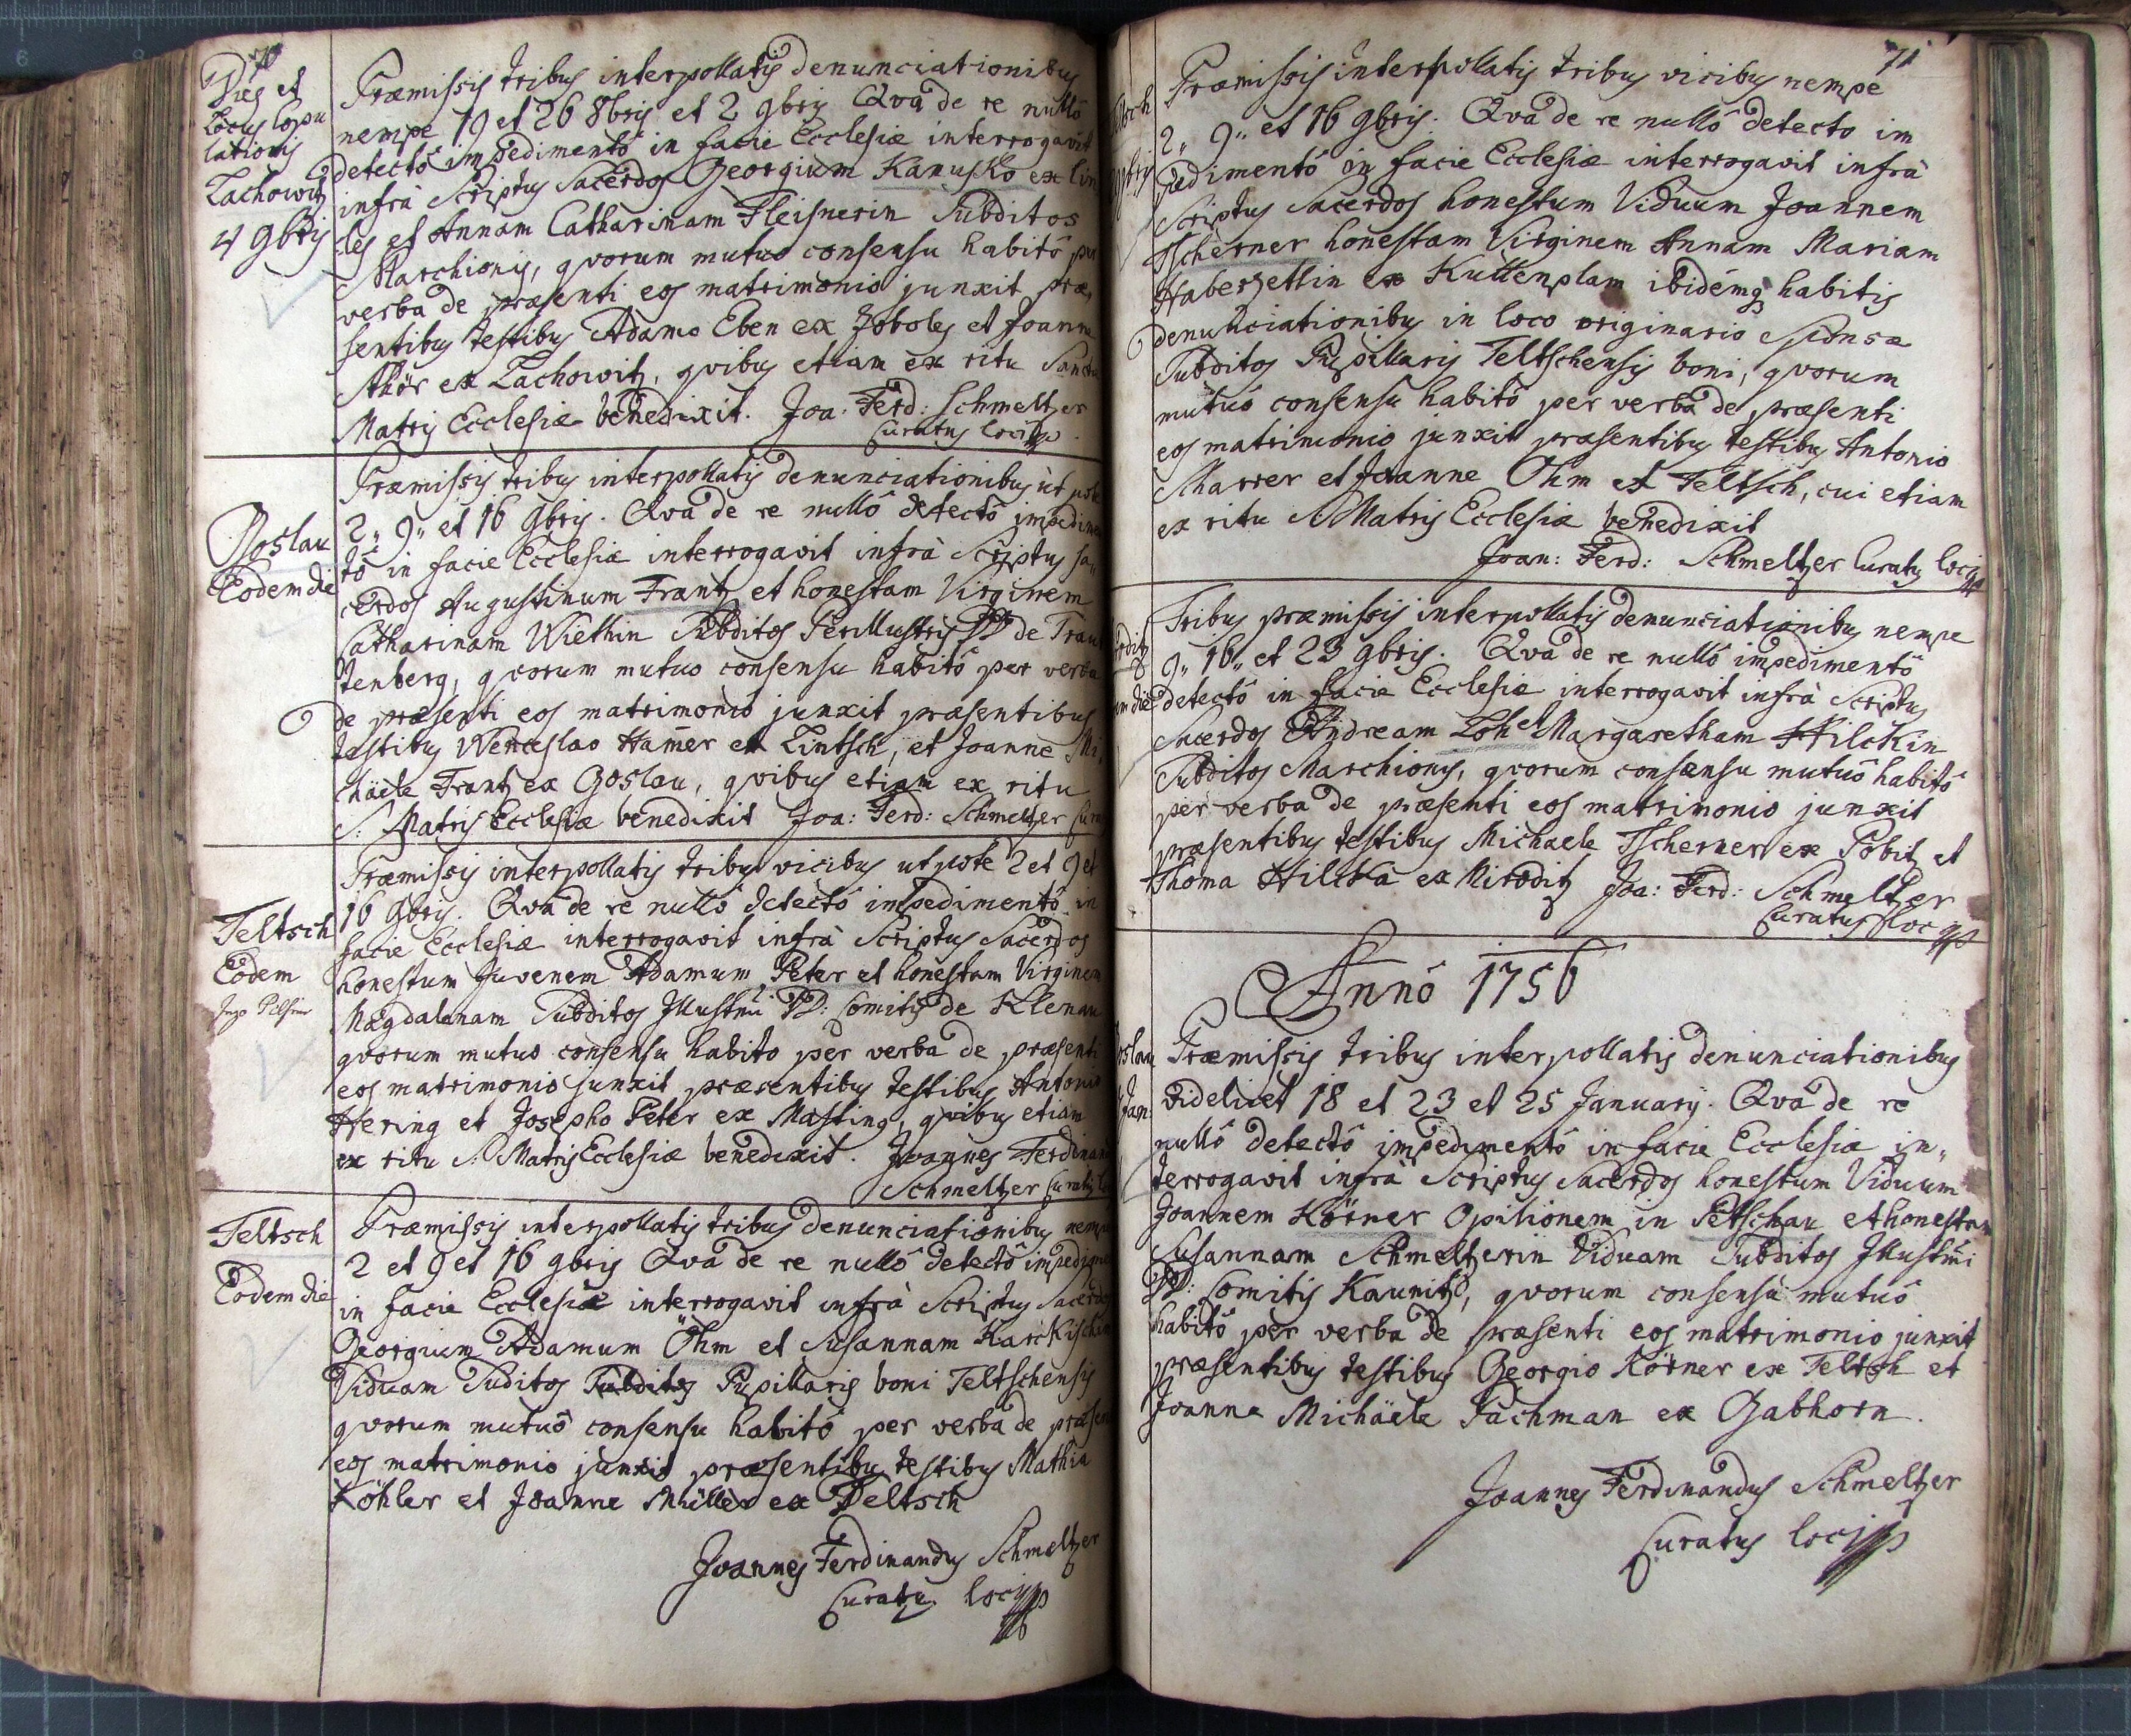 70
Dies et
Locus Copu
lationis
Lachowitz
4 9bris
Præmissis tribus interpollatis denunciationibus
nempe 19 et 26 8bris et 2 9bris Qvâ de re nullô
detectô impedimentô in facie Ecclesiæ interrogavit
infrà Scriptus Sacerdos Georgium Kanusko ex Lin
les et Annam Catharinam Fleisnerin Subditos
Marchionis, qvorum mutuo consensu habitô per
verba de præsenti eos matrimonio junxit præ,
sentibus testibus Adamo Eben ex Joboles et Joanne
Sthör ex Lachowitz, qvibus etiam ex ritu Sanctæ
Matris Ecclesiæ benedixit. Joa: Ferd: Schmeltzer
Curatus loci
Goslau
Eodem die
Præmissis tribus interpollatis denunciationibus ùt pote
2„ 9„ et 16 9bris. Qvâ de re nullô detectô impedimen
tô in facie Ecclesiæ interrogavit infrà Scriptus Sa„
cerdos Augustinum Frantz et honestam Virginem
Catharinam Wiethin Subditos Perillustris de Trau
tenberg, qvorum mutuo consensu habitô per verba
de præsenti eos matrimonio junxit præsentibus
testibus Wenceslao Hamer ex Lintsch, et Joanne Mi
häele Frantz ex Goslau, qvibus etiam ex ritu
S: Matris Ecclesiæ benedixit Joa: Ferd: Schmeltzer Cur
Teltsch
Eodem
Præmissis interpollatis tribus vicibus utpote 2 et 9 et
16 9bris. Qvâ de re nullô detectô impedimentô in
facie Ecclesiæ interrogavit infrà Scriptus Sacerdos
honestum Juvenem Adamum Peter et honestam Virginem
Magdalenam Subditos Illustmi DD: Comitis de Klenau
qvorum mutuo consensu habito per verba de præsenti
eos matrimonio junxit præsentibus testibus Antonio
Hering et Josepho Peter ex Masting, qvibus etiam
ex ritu S: Matris Ecclesiæ benedixit. Joannes Ferdinand
Schmeltzer Curatus
Teltsch
Eodem die
Præmissis interpollatis tribus denunciationibus nempe
2 et 9 et 16 9bris Qvâ de re nullô detectô impedimen
in facie Ecclesiæ interrogavit infrà Scriptus Sacerdos
Georgium Adamum Öhm et Susannam Karckischin
Viduam Suditos Subditos Pupillaris boni Teltschensis
qvorum mutuô consensu habitô per verba de præsen
eos matrimonio junxit præsentibus testibus Mathia
Köhler et Joanne Mhüller ex Teltsch
Joannes Ferdinandus Schmeltzer
Curatus loci
71
Præmissis interpollatis tribus vicibus nempe
2„ 9„ et 16 9bris. Qvâ de re nullô detecto im
pedimentô in facie Ecclesiæ interrogavit infrà
Scriptus Sacerdos honestum Viduum Joannem
Tscherner honestam Virginem Annam Mariam
Haberzettin ex Kuttenplam ibidémq habitis
denunciationibus in loco originario Sponsæ
Subditos Pupillaris Teltschensis boni, qvorum
mutuô consensu habitô per verba de præsenti
eos matrimonio junxit præsentibus testibus Antonio
Scharrer et Joanne Ohm ex Teltsch, cui etiam
ex ritu S Matris Ecclesiæ benedixit
Joan: Ferd: Schmeltzer Curatus loci
Tribus præmissis interpollatis denunciationibus nempe
9„ 16„ et 23 9bris. Qvâ de re nullô impedimentô
detectô in facie Ecclesiæ interrogavit infrà Scriptus
Sacerdos Andream Loh et Margaretham Hilckin
Subditos Marchionis, qvorum consensu mutuô habitô
per verba de præsenti eos matrimonio junxit
præsentibus testibus Michaele Tscherner ex Pobitz et
Thoma Hilcka ex Miroditz Joa: Ferd: Schmeltzer
Curatus loci
Annô 1756
Jan:
Præmissis tribus interpollatis denunciationibus
videlicet 18 et 23 et 25 Januarÿ. Qvâ de re
nullô detectô impedimentô in facie Ecclesiæ in„
terrogavit infrà Scriptus Sacerdos honestum Viduum
Joannem Körner Opilionem in Petschau et honestam
Susannam Schmeltzerin Viduam Subditos Illustmi
DD: Comitis Kaunitz, qvorum consensu mutuô
habitô per verba de præsenti eos matrimonio junxit
præsentibus testibus Georgio Körner ex Teltsch et
Joanne Michäele Pachman ex Gabhorn.
Joannes Ferdinandus Schmeltzer
Curatus loci